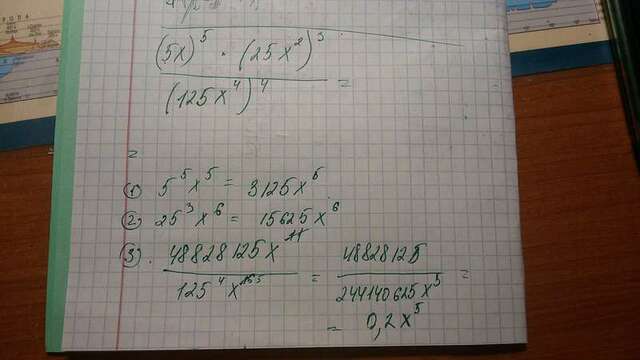 (5x)⁵ · (25x²)³
(125x⁴)⁴ =
=
① 5⁵x⁵ = 3125x⁵
② 25³x⁶ = 15625x⁶
③ 48828125x¹¹ / 125⁴x = 48828125 / 244140625x⁵ =
= 0,2x⁵